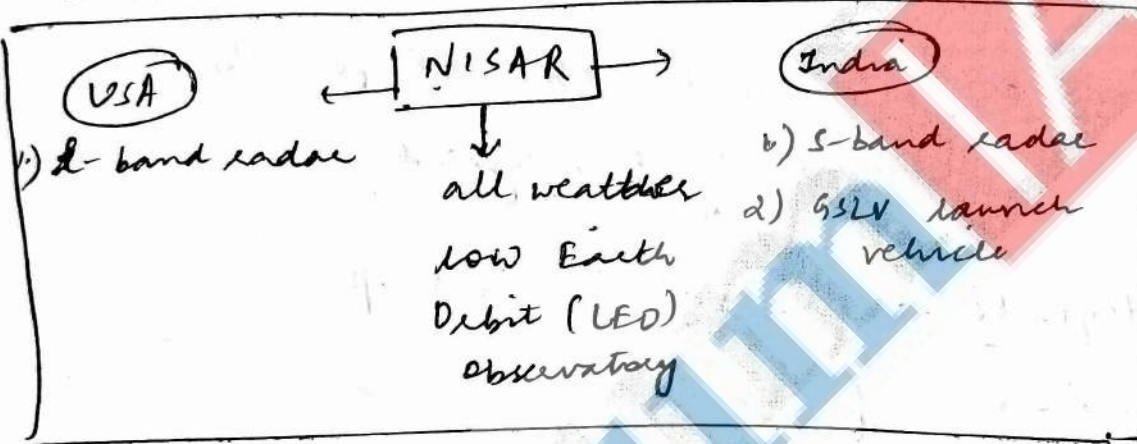 NISAR
USA
1.) L-band radar
all weather
low Earth
Orbit (LEO)
observatory
India
1) S-band radar
2) GSLV launch
vehicle